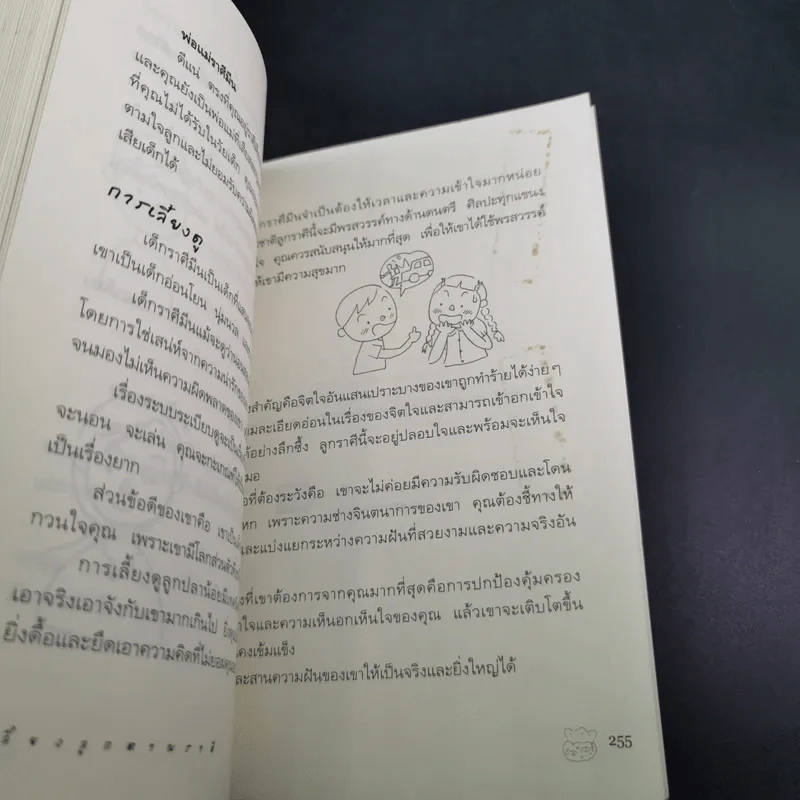 พ่อแม่ราศีมีน
ดีแน่ ตรงที่คุณ
และคุณยังเป็นพ่อแม่ที่
ที่คุณไม่ได้รับในวัยเด็ก
ตามใจลูกและไม่ยอมรับความ
เสียเด็กได้
การเลี้ยงดู
เด็กราศีมีนเป็นเด็กที่
เขาเป็นเด็กอ่อนโยน นุ่มนวล
เด็กราศีมีนแม้จะดูว่า
โดยการใช้เสน่ห์จากความน่ารัก
จนมองไม่เห็นความผิดพลาดของ
เรื่องระบบระเบียบดูจะเป็น
จะนอน จะเล่น คุณจะกะเกณฑ์
เป็นเรื่องยาก
ส่วนข้อดีของเขาคือ เขาเป็น
กวนใจคุณ เพราะเขามีโลกส่วนตัว
การเลี้ยงดูลูกปลาน้อย
เอาจริงเอาจังกับเขามากเกินไป ยิ่ง
ยิ่งดื้อและยึดเอาความคิดที่ไม่ยอม
ลูกตามราศี
ด็กราศีมีนจำเป็นต้องให้เวลาและความเข้าใจมากหน่อย
ชาติลูกราศีนี้จะมีพรสวรรค์ทางด้านดนตรี ศิลปะทุกแขนง
คุณควรสนับสนุนให้มากที่สุด เพื่อให้เขาได้ใช้พรสวรรค์
ให้เขามีความสุขมาก
สำคัญคือจิตใจอันแสนเปราะบางของเขาถูกทำร้ายได้ง่ายๆ
มละเอียดอ่อนในเรื่องของจิตใจและสามารถเข้าอกเข้าใจ
ด้อย่างลึกซึ้ง ลูกราศีนี้จะอยู่ปลอบใจและพร้อมจะเห็นใจ
มอ
อที่ต้องระวังคือ เขาจะไม่ค่อยมีความรับผิดชอบและโดน
หก เพราะความช่างจินตนาการของเขา คุณต้องชี้ทางให้
และแบ่งแยกระหว่างความฝันที่สวยงามและความจริงอัน
งที่เขาต้องการจากคุณมากที่สุดคือการปกป้องคุ้มครอง
าใจและความเห็นอกเห็นใจของคุณ แล้วเขาจะเติบโตขึ้น
คงเข้มแข็ง
ละสานความฝันของเขาให้เป็นจริงและยิ่งใหญ่ได้
255